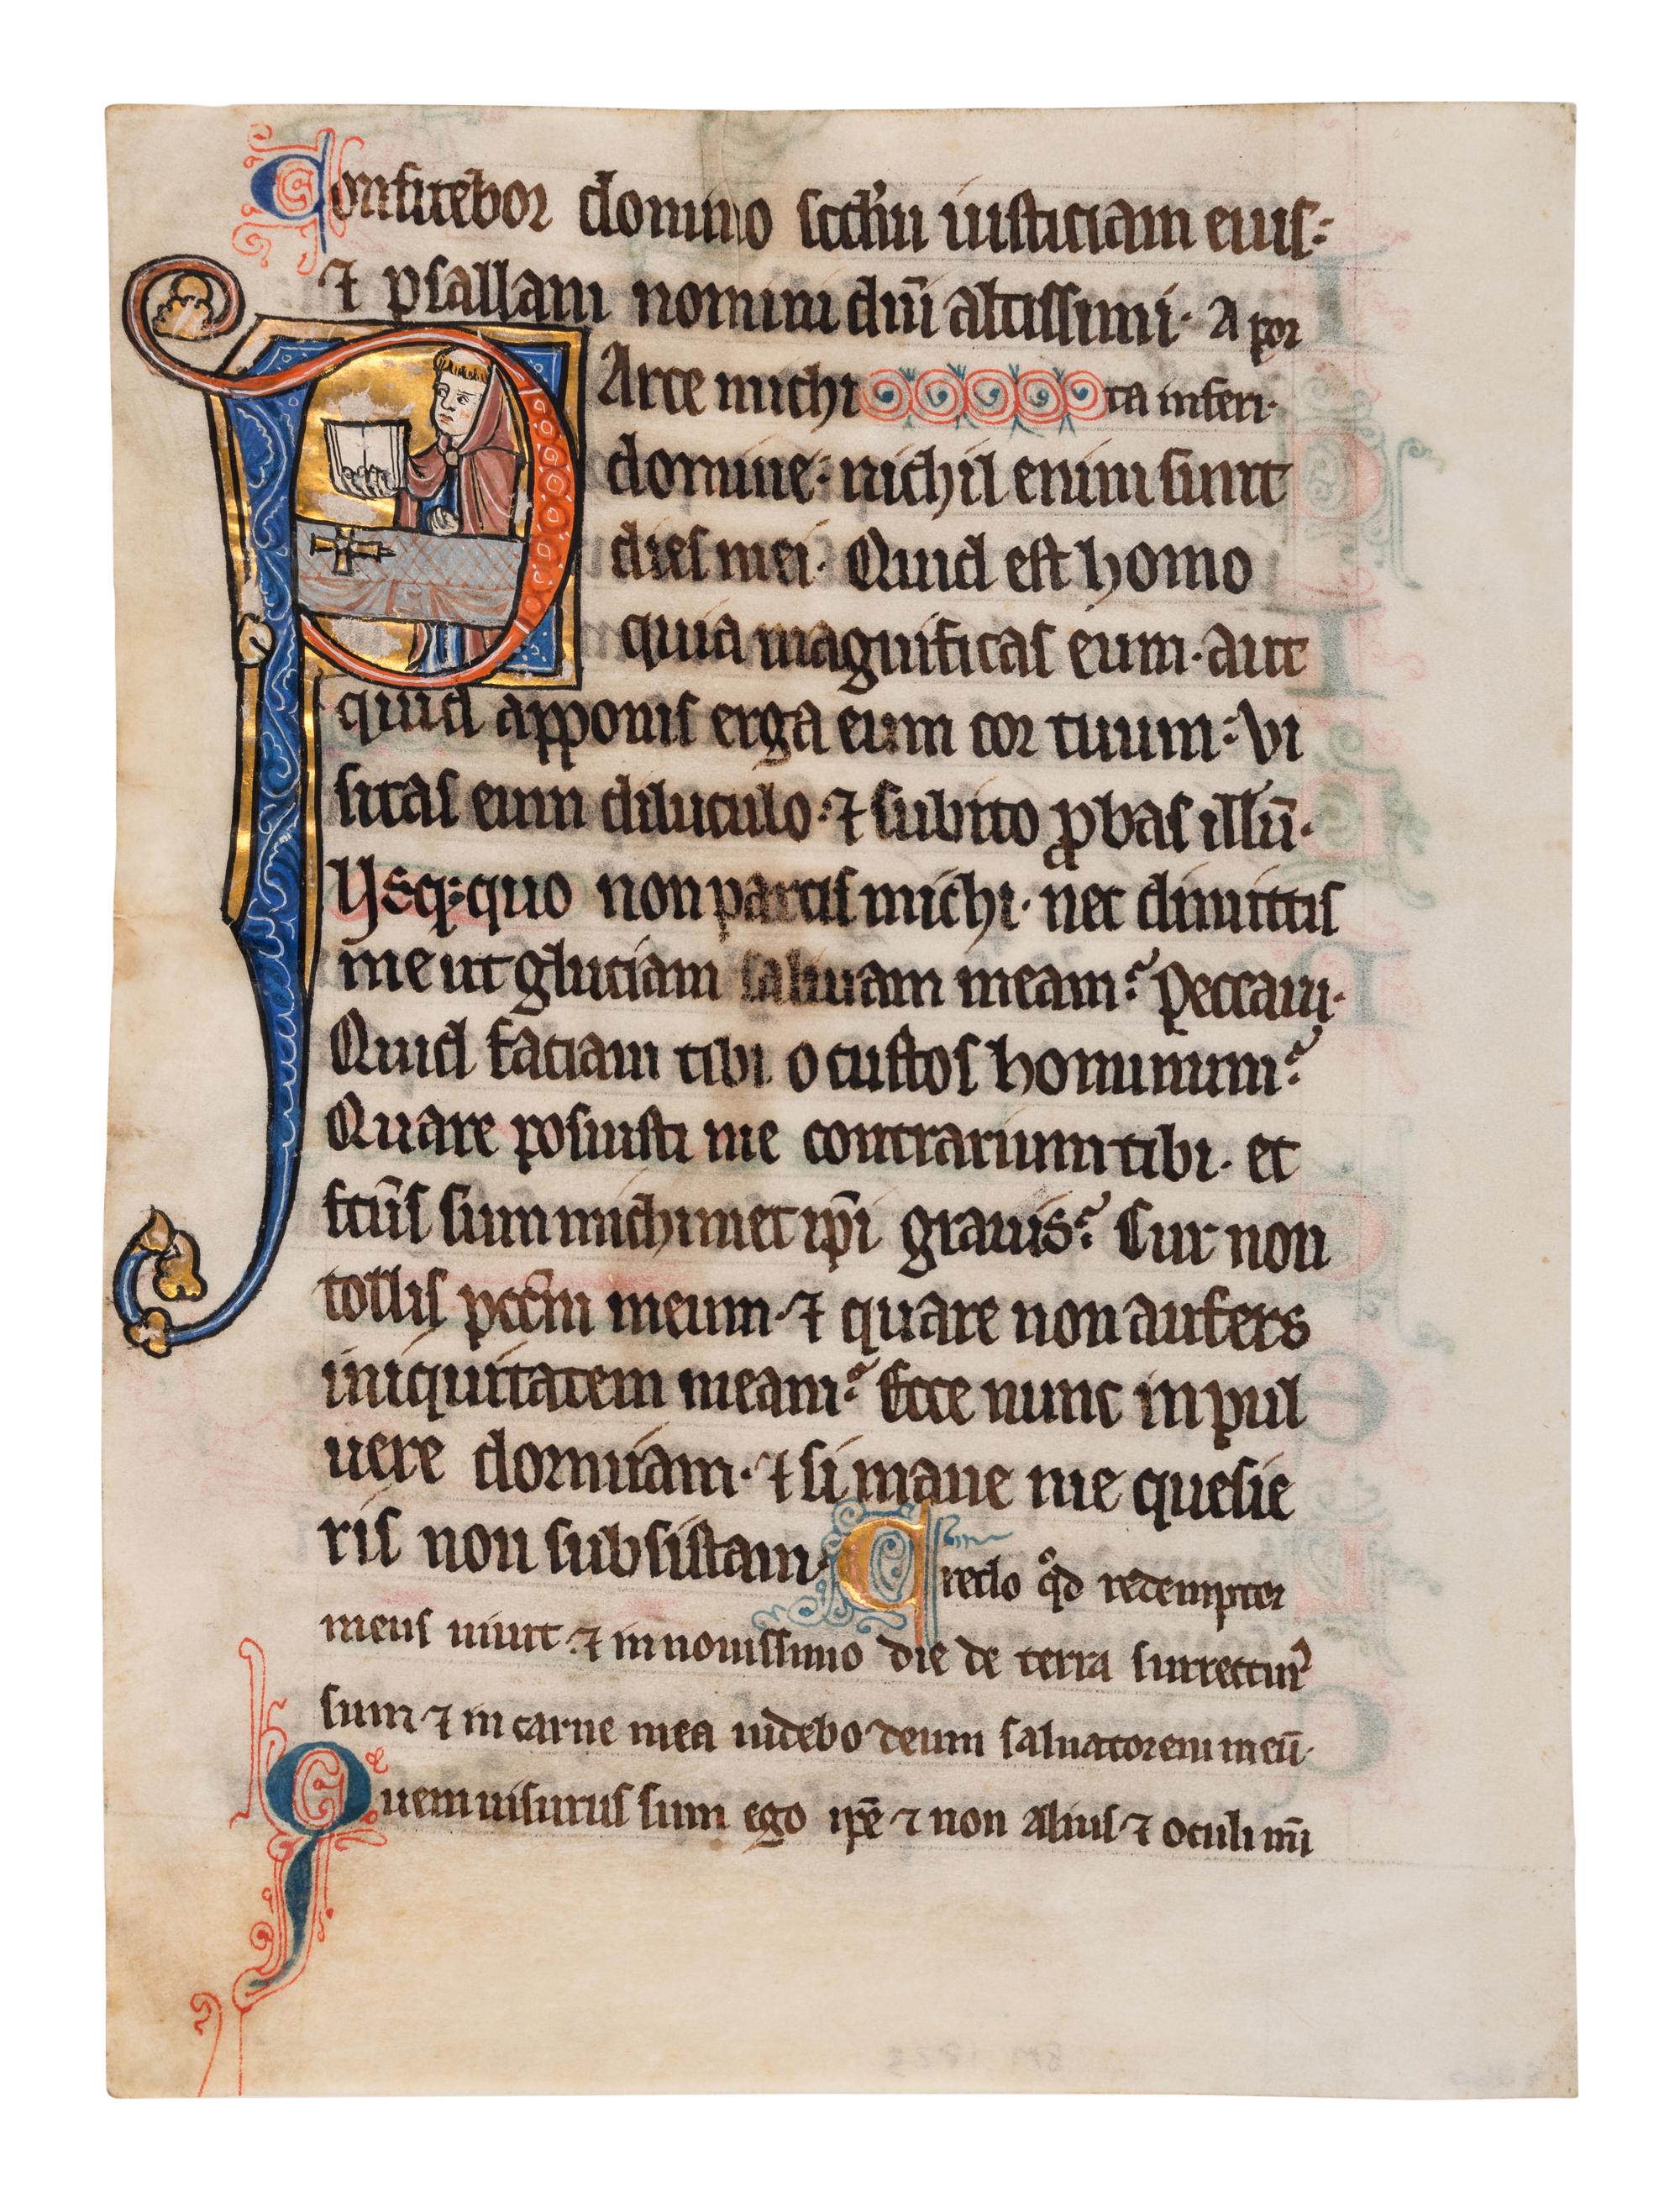 Confitebor domino scdm iusticiam eius:
⁊ psallam nomini dn̄i altissimi. A por
PArce michi ta inferi.
domine: nichil enim sunt
dies mei. Quid est homo
quia magnificas eum. aut
quid apponis erga eum cor tuum: Vi
sitas eum diluculo. ⁊ subito ꝓbas illū.
VSqꝫquo non parcis michi. nec dimittis
me ut gluciam saliuam meam? Peccaui.
Quid faciam tibi o custos hominum?
Quare posuisti me contrarium tibi. et
fcūs sum michimet ip̄i grauis? Cur non
tollis pcc̄m meum. ⁊ quare non aufers
iniquitatem meam? Ecce nunc in pul
uere dormiam. ⁊ si mane me quesie
ris non subsistam. Credo qͦd redemptor
meus uiuit ⁊ in nouissimo die de terra surrectur᾿
sum ⁊ in carne mea uidebo deum saluatorem meū.
Quem uisurus sum ego ip̄e ⁊ non alius ⁊ oculi mī